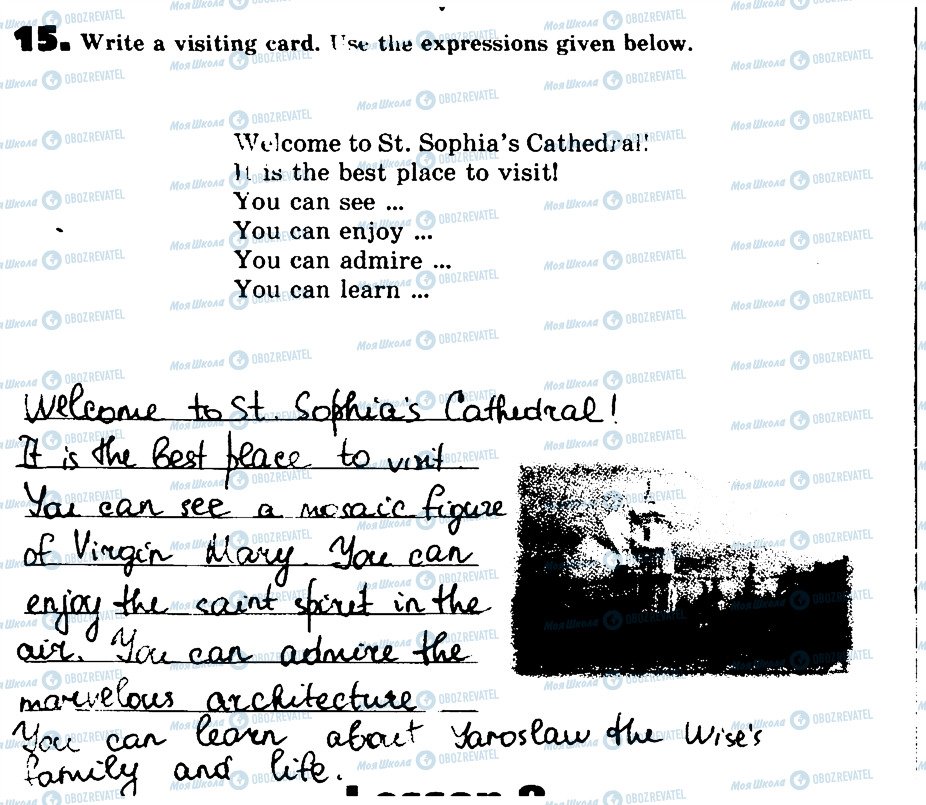 15. Write a visiting card. Use the expressions given below.
Welcome to St. Sophia's Cathedral!
It is the best place to visit!
You can see ...
You can enjoy ...
You can admire ...
You can learn ...
Welcome to St. Sophia's Cathedral!
It is the Best place to visit
You can see a mosaic figure
of Virgin Mary. You can
enjoy the saint spiret in the
air. You can admire the
marvelous architecture
You can learn about Yaroslaw the Wise's
family and life.
МояШкола OBOZREVATEL